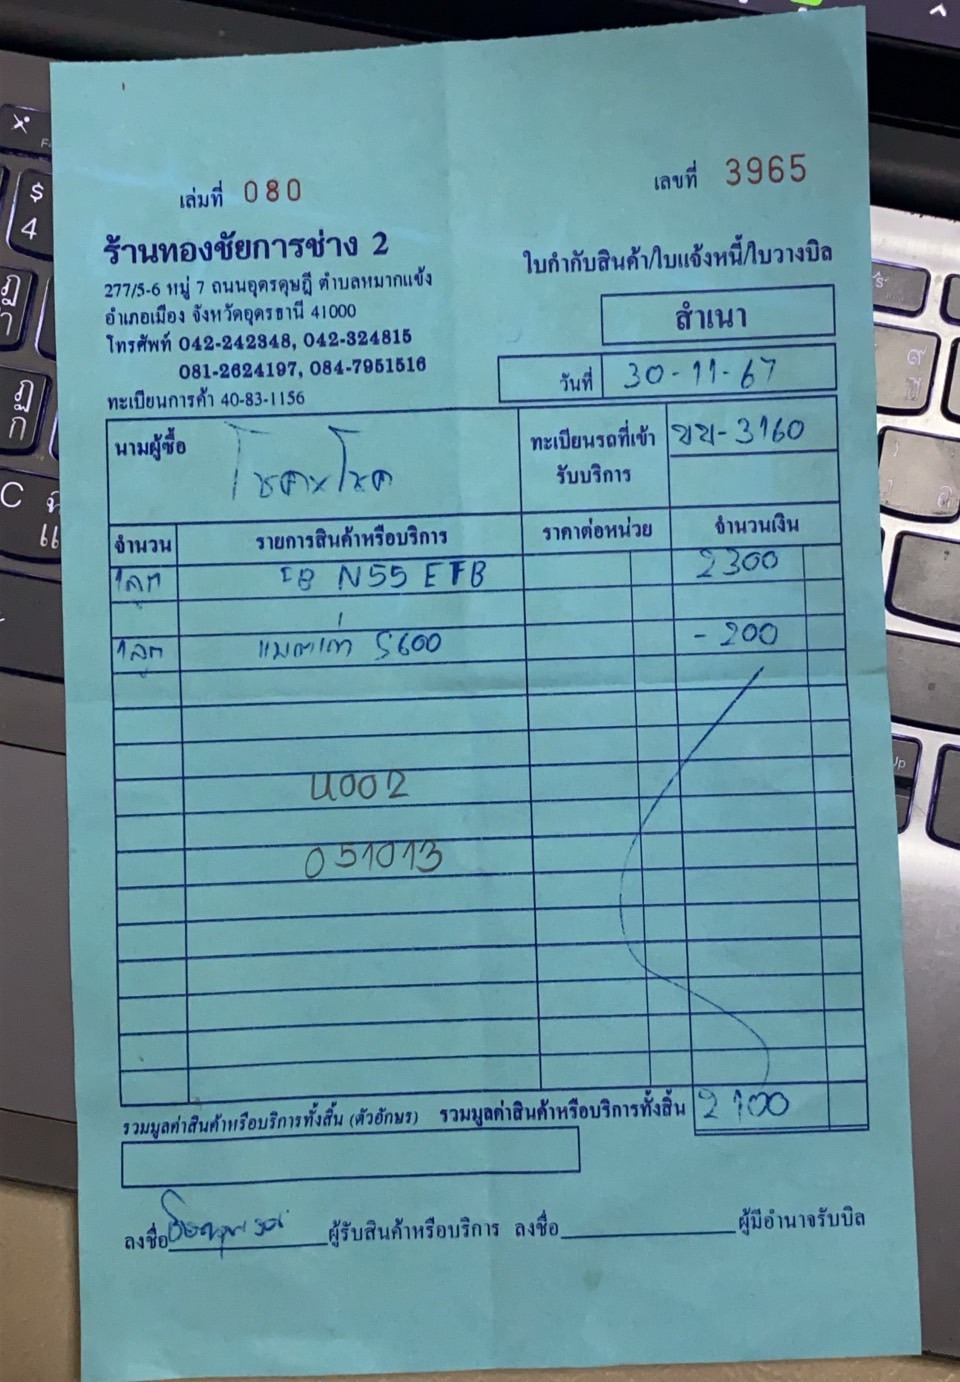 เล่มที่ 080
เลขที่ 3965
ร้านทองชัยการช่าง 2
277/5-6 หมู่ 7 ถนนอุดรดุษฎี ตำบลหมากแข้ง
อำเภอเมือง จังหวัดอุดรธานี 41000
โทรศัพท์ 042-242348, 042-324815
081-2624197, 084-7951516
ทะเบียนการค้า 40-83-1156
ใบกำกับสินค้า/ใบแจ้งหนี้/ใบวางบิล
สำเนา
วันที่ 30-11-67
นามผู้ซื้อ
ทะเบียนรถที่เข้ารับบริการ ขข-3160
จำนวน รายการสินค้าหรือบริการ ราคาต่อหน่วย จำนวนเงิน
1 ลูก N55 EFB 2300
1 ลูก แบตเก่า 5600 -200
U002
051013
รวมมูลค่าสินค้าหรือบริการทั้งสิ้น (ตัวอักษร) รวมมูลค่าสินค้าหรือบริการทั้งสิ้น 2100
ลงชื่อ ผู้รับสินค้าหรือบริการ ลงชื่อ ผู้มีอำนาจรับบิล